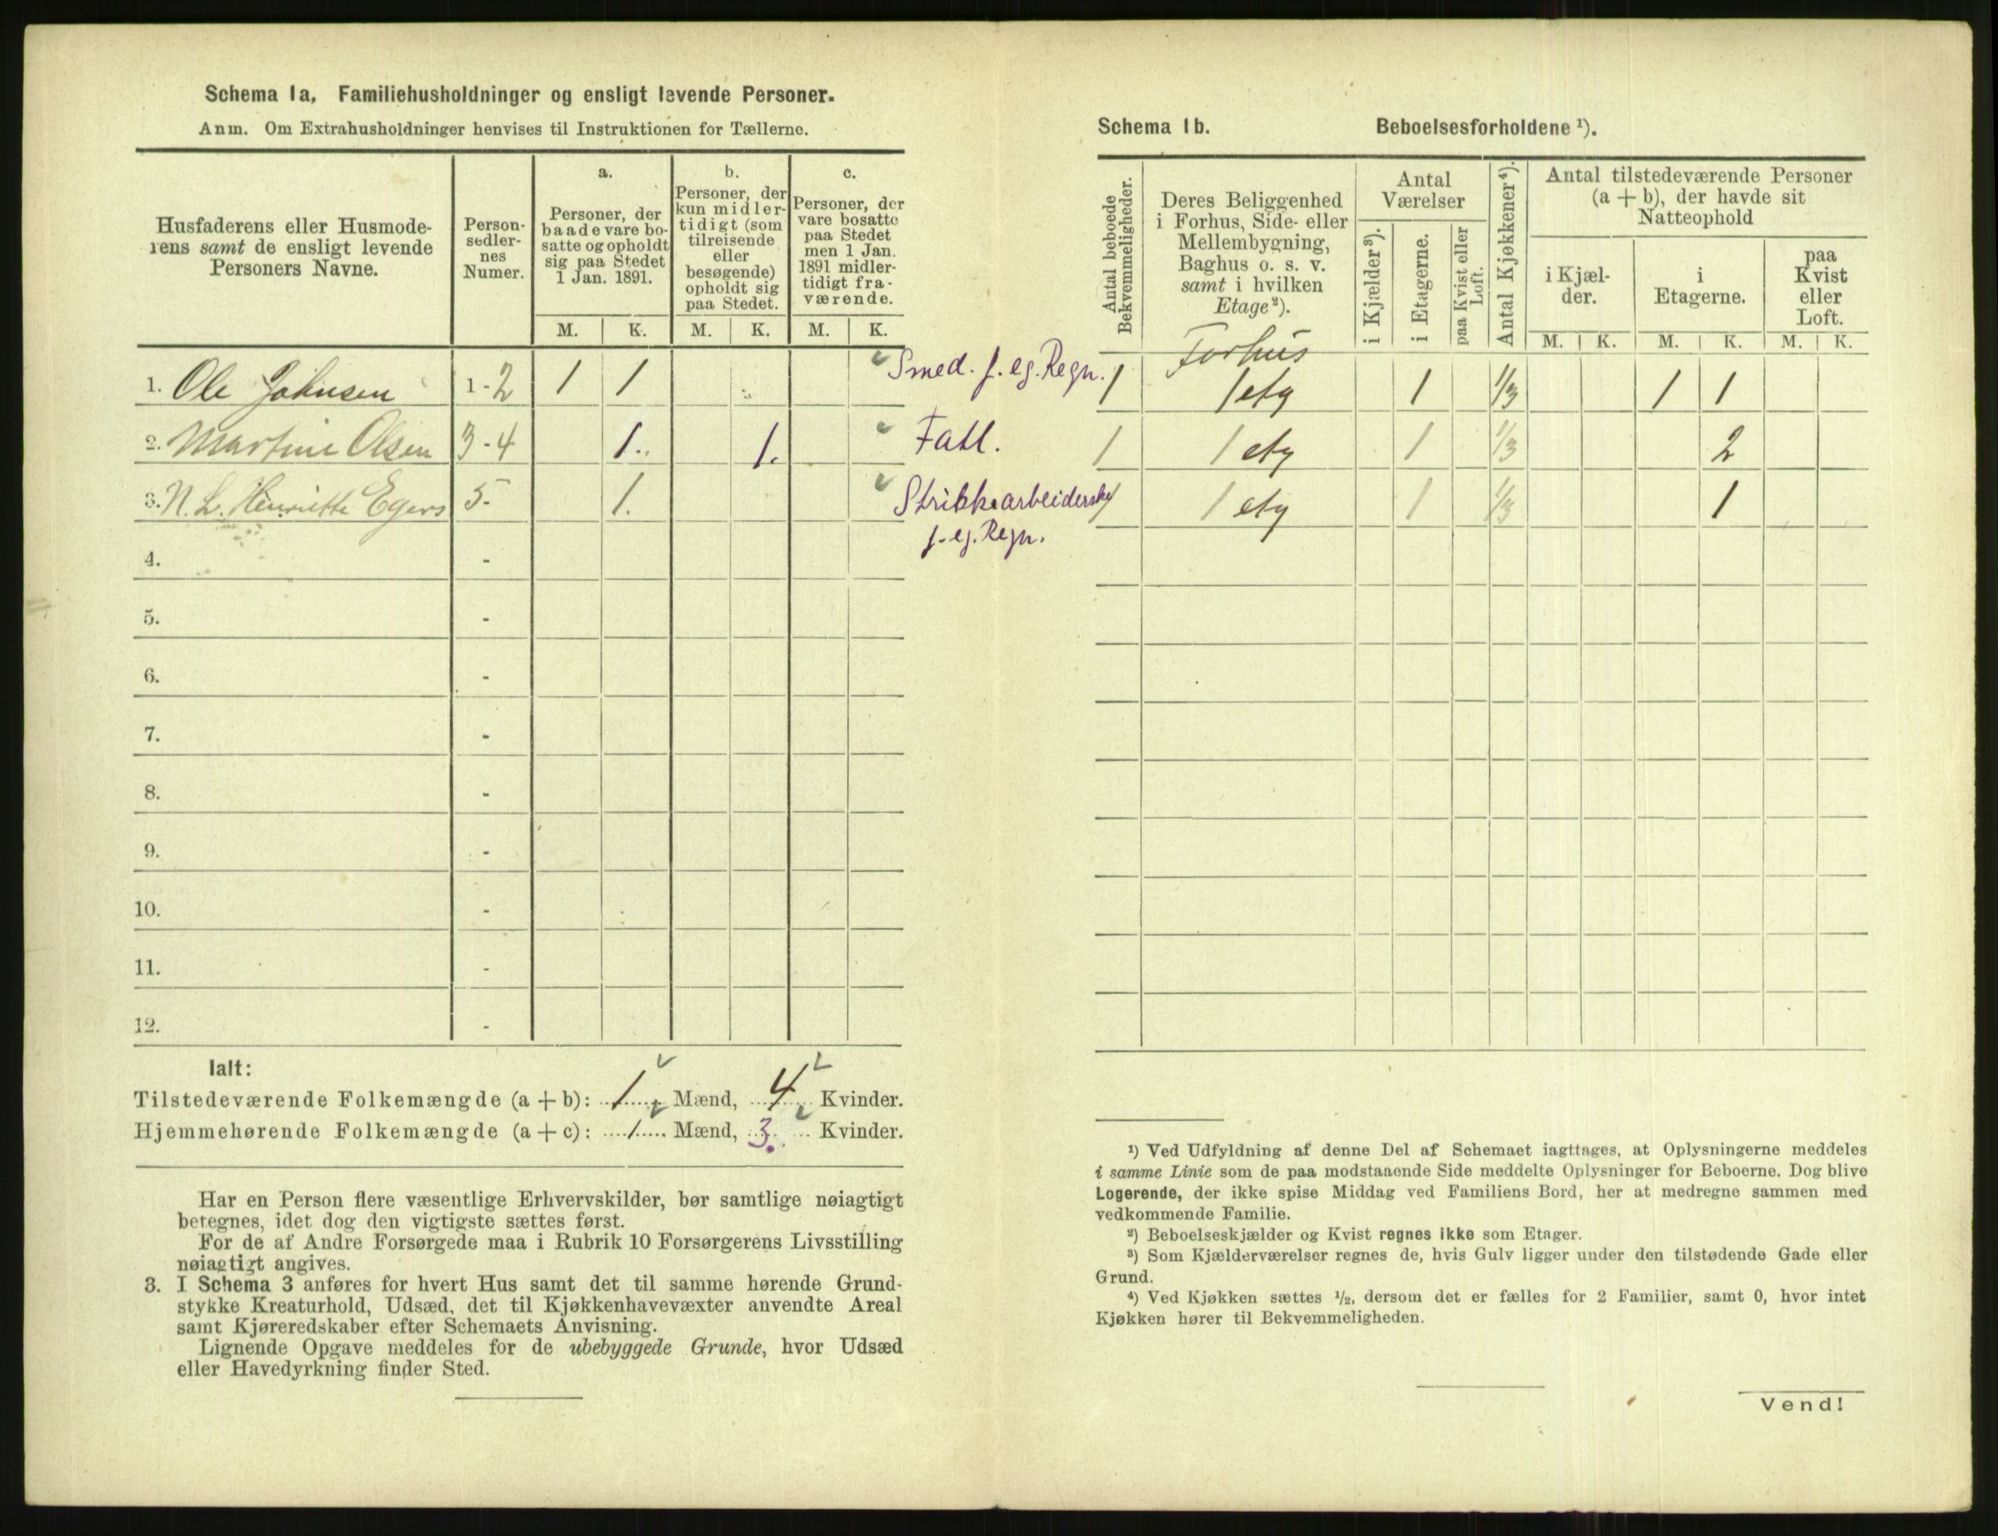 Schema 1a. Familiehusholdninger og ensligt levende Personer.
Anm. Om Extrahusholdninger henvises til Instruktionen for Tællerne.
Husfaderens eller Husmode-
rens samt de ensligt levende
Personers Navne.
Person-
sedler-
nes
Numer.
a.
Personer, der
baade vare bo-
satte og opholdt
sig paa Stedet
1 Jan. 1891.
b.
Personer, der
kun midler-
tidigt (som
tilreisende
eller
besøgende)
opholdt sig
paa Stedet.
c.
Personer, der
vare bosatte
paa Stedet
men 1 Jan.
1891 midler-
tidigt fra-
værende.
M. K. M. K. M. K.
1. Ole Johnsen 1-2 1 1 Smed. f. eg. Regn.
2. Martine Olsen 3-4 1. 1. Fatl.
3. N. L. Henriette Egers 5- 1. Strikkearbeiderske
f. eg. Regn.
4. -
5. -
6. -
7. -
8. -
9. -
10. -
11. -
12. -
Ialt:
Tilstedeværende Folkemængde (a + b): 1 Mænd, 4 Kvinder.
Hjemmehørende Folkemængde (a + c): 1 Mænd, 3 Kvinder.
Har en Person flere væsentlige Erhvervskilder, bør samtlige nøiagtigt
betegnes, idet dog den vigtigste sættes først.
For de af Andre Forsørgede maa i Rubrik 10 Forsørgerens Livsstilling
nøiagtigt angives.
3. I Schema 3 anføres for hvert Hus samt det til samme hørende Grund-
stykke Kreaturhold, Udsæd, det til Kjøkkenhavevæxter anvendte Areal
samt Kjøreredskaber efter Schemaets Anvisning.
Lignende Opgave meddeles for de ubebyggede Grunde, hvor Udsæd
eller Havedyrkning finder Sted.
Schema 1b. Beboelsesforholdene ¹).
Antal beboede
Bekvemmeligheder.
Deres Beliggenhed
i Forhus, Side- eller
Mellembygning,
Baghus o. s. v.
samt i hvilken
Etage²).
Antal
Værelser
i Kjælder³).
i Etagerne.
paa Kvist eller
Loft.
Antal Kjøkkener⁴).
Antal tilstedeværende Personer
(a + b), der havde sit
Natteophold
i Kjæl-
der.
i
Etagerne.
paa
Kvist
eller
Loft.
M. K. M. K. M. K.
Forhus
1 1 etg 1 1/3 1 1
1 1 etg 1 1/3 2
1 1 etg 1 1/3 1
¹) Ved Udfyldning af denne Del af Schemaet iagttages, at Oplysningerne meddeles
i samme Linie som de paa modstaaende Side meddelte Oplysninger for Beboerne. Dog blive
Logerende, der ikke spise Middag ved Familiens Bord, her at medregne sammen med
vedkommende Familie.
²) Beboelseskjælder og Kvist regnes ikke som Etager.
³) Som Kjælderværelser regnes de, hvis Gulv ligger under den tilstødende Gade eller
Grund.
⁴) Ved Kjøkken sættes ½, dersom det er fælles for 2 Familier, samt 0, hvor intet
Kjøkken hører til Bekvemmeligheden.
Vend!